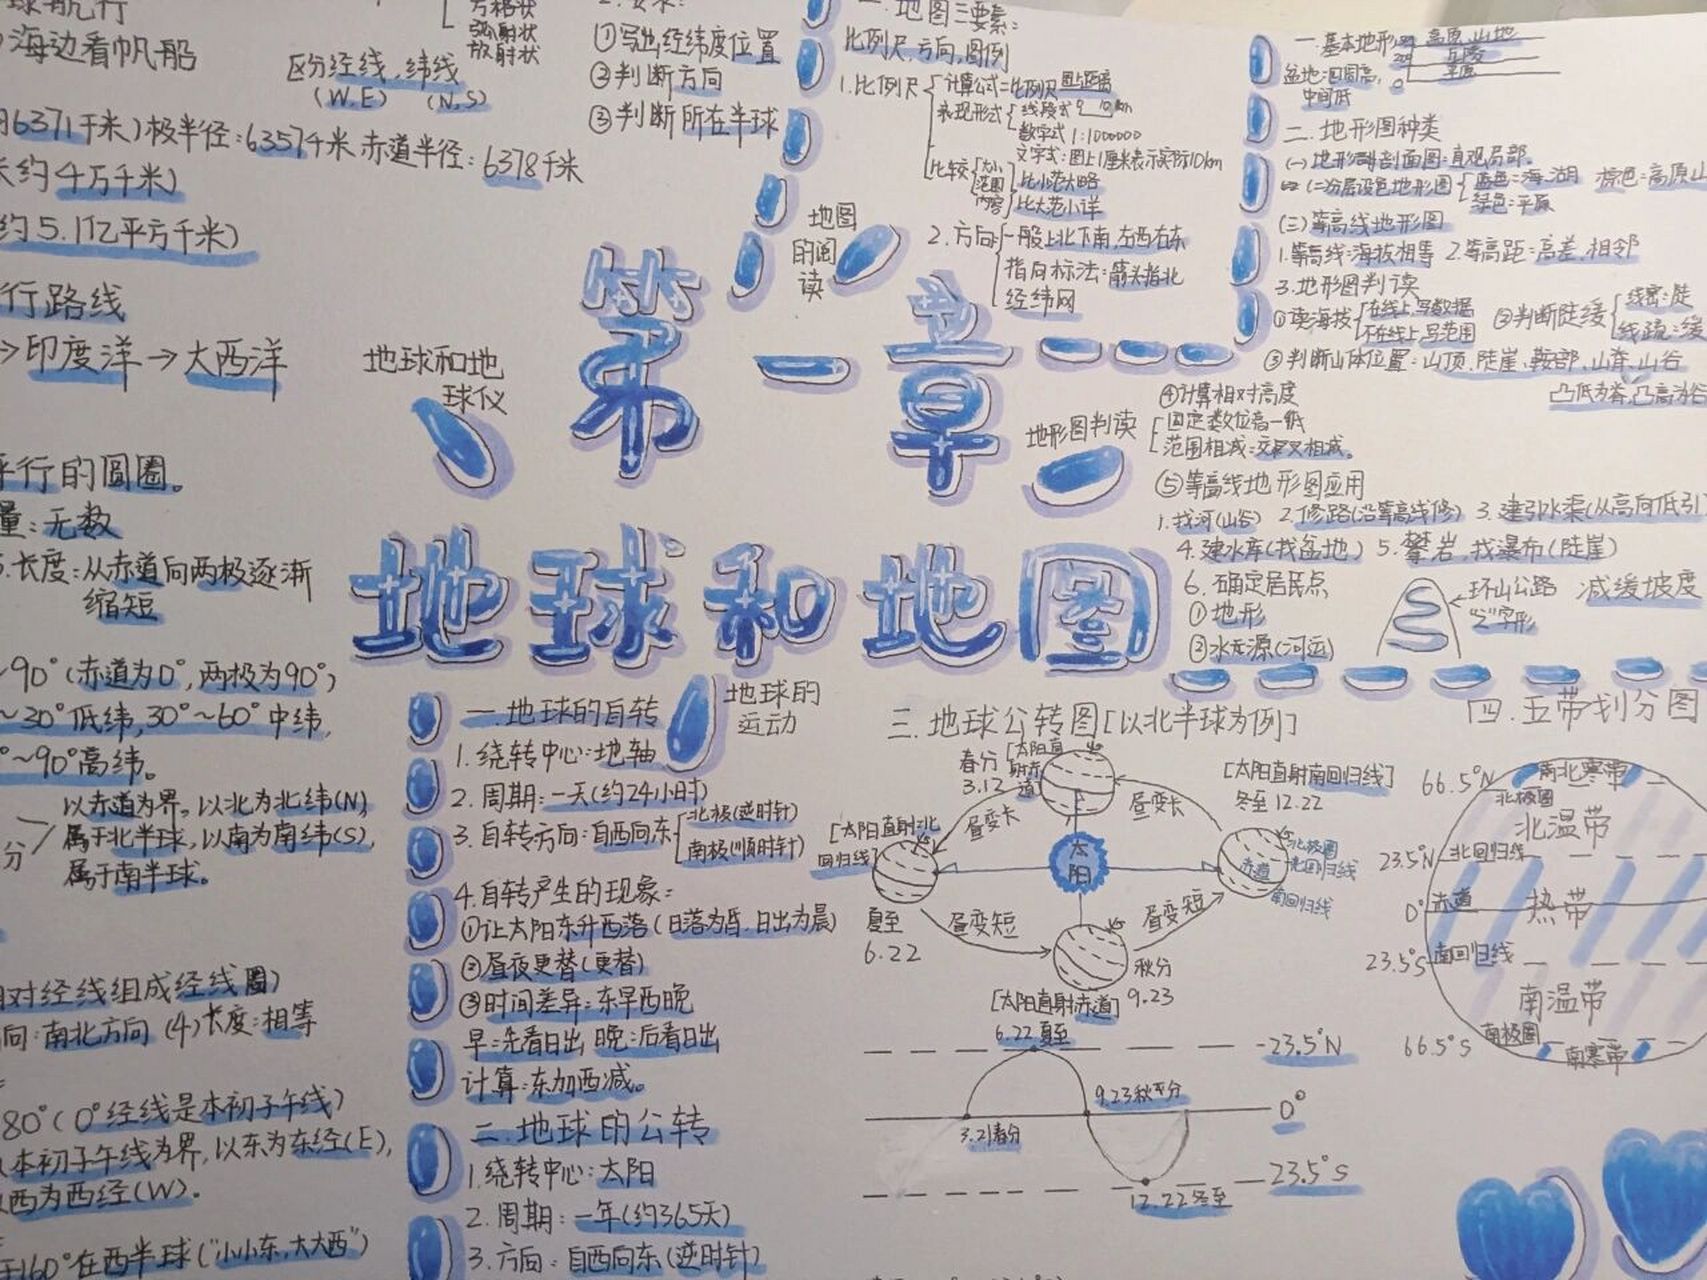 球航行
海边看帆船
区分经线,纬线
(W,E) (N,S)
6371千米)极半径:6357千米 赤道半径:6378千米
约4万千米)
约5.1亿平方千米)
行路线
→印度洋→大西洋
平行的圆圈。
量:无数
长度:从赤道向两极逐渐
缩短
90°(赤道为0°,两极为90°)
~30°低纬,30°~60°中纬,
~90°高纬。
以赤道为界,以北为北纬(N),
属于北半球,以南为南纬(S),
属于南半球。
对经线组成经线圈)
向:南北方向 (4)长度:相等
80°(0°经线是本初子午线)
本初子午线为界,以东为东经(E),
西为西经(W)。
160°在西半球("小小东,大大西")
方格状
弧射状
放射状
①写出经纬度位置
②判断方向
③判断所在半球
地球和地
球仪
第一章
地球和地图
地图
的阅
读
一.地图三要素:
比例尺,方向,图例
1.比例尺
计算公式=比例尺 图上距离
表现形式
线段式 0 10km
数字式 1:1000000
文字式:图上1厘米表示实际10km
比较
范围
内容
比小范大略
比大范小详
2.方向
一般上北下南,左西右东
指向标法:箭头指北
经纬网
地形图判读
一.基本地形
高原,山地
丘陵
平原
盆地:四周高,
中间低
二.地形图种类
(一)地形剖面图:直观局部.
(二)分层设色地形图
蓝色=海,湖 棕色=高原山
绿色=平原
(三)等高线地形图
1.等高线:海拔相等 2.等高距=高差,相邻
3.地形图判读
①读海拔
在线上,写数据
不在线上,写范围
②判断陡缓
线密:陡
线疏:缓
③判断山体位置:山顶,陡崖,鞍部,山脊,山谷
凸低为脊,凸高为谷
④计算相对高度
固定数位高一低
范围相减:交叉相减。
⑤等高线地形图应用
1.找河(山谷) 2.修路(沿等高线修) 3.建引水渠(从高向低引
4.建水库(找盆地) 5.攀岩,找瀑布(陡崖)
6.确定居民点
①地形
②水源(河运)
环山公路 减缓坡度
字形
地球的
运动
一.地球的自转
1.绕转中心:地轴
2.周期:一天(约24小时)
3.自转方向:自西向东
北极(逆时针)
南极(顺时针)
4.自转产生的现象:
①让太阳东升西落(日落为昏,日出为晨)
②昼夜更替(更替)
③时间差异:东早西晚
早:先看日出 晚:后看日出
计算:东加西减。
二.地球的公转
1.绕转中心:太阳
2.周期:一年(约365天)
3.方向:自西向东(逆时针)
三.地球公转图[以北半球为例]
春分
3.12
[太阳直
射赤
道
昼变长
昼变长
[太阳直射南回归线]
冬至 12.22
[太阳直射北
回归线]
夏至
6.22
太
阳
北极圈
北回归线
赤道
南回归线
昼变短
昼变短
秋分
9.23
[太阳直射赤道]
6.22夏至
23.5°N
9.23秋分
0°
3.21春分
23.5°S
12.22冬至
四.五带划分图
66.5°N
北寒带
北极圈
北温带
23.5°N 北回归线
0° 赤道
热带
23.5°S 南回归线
南温带
66.5°S
南极圈
南寒带